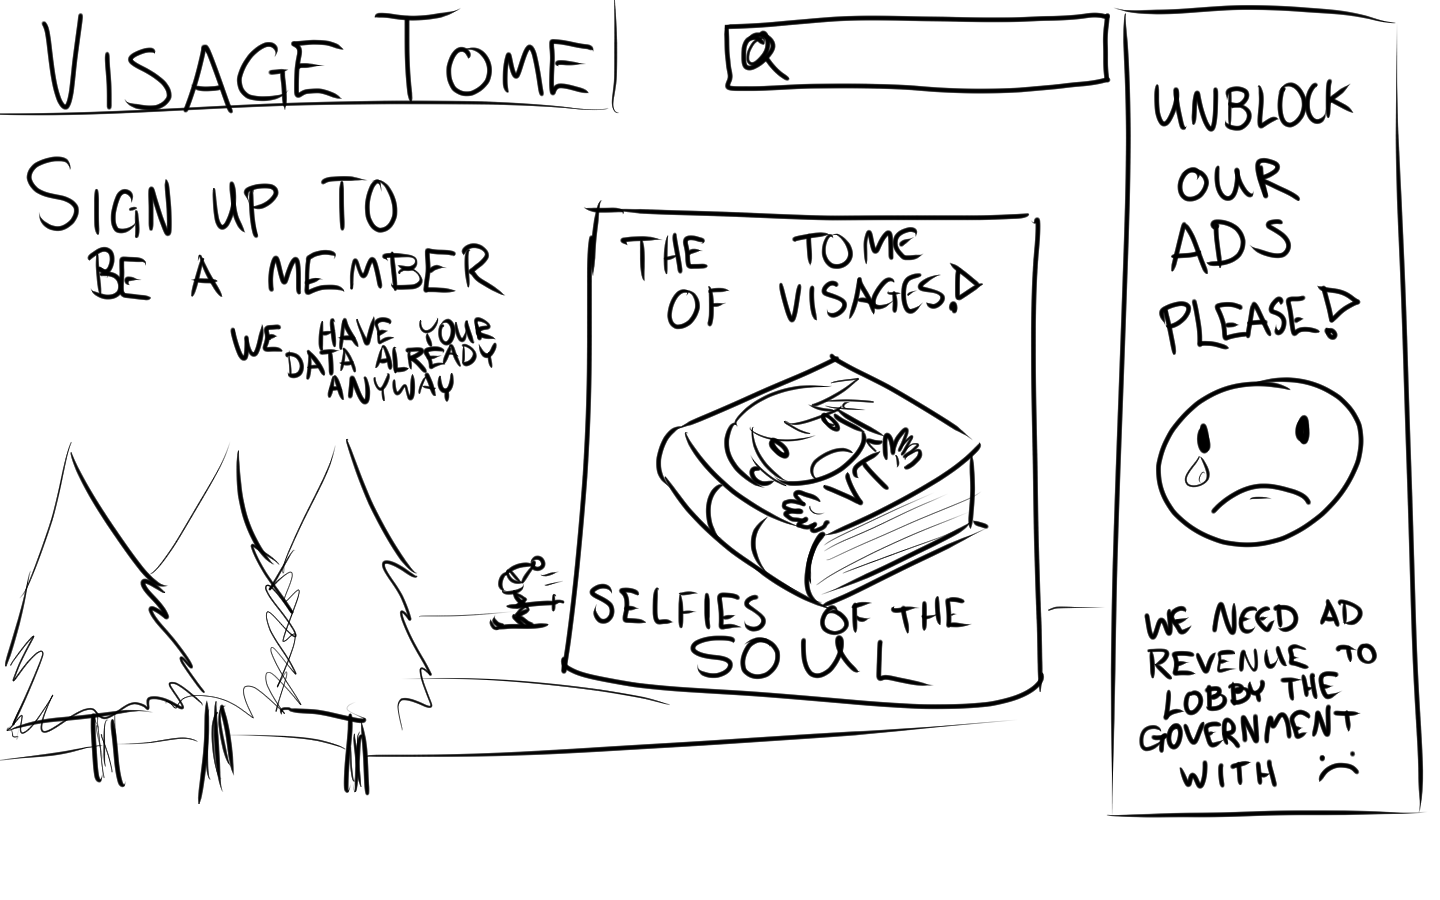 VISAGE TOME
SIGN UP TO
BE A MEMBER
WE HAVE YOUR
DATA ALREADY
ANYWAY
THE TOME
OF VISAGES!
VT
SELFIES OF THE
SOUL
UNBLOCK
OUR
ADS
PLEASE!
WE NEED AD
REVENUE TO
LOBBY THE
GOVERNMENT
WITH :(